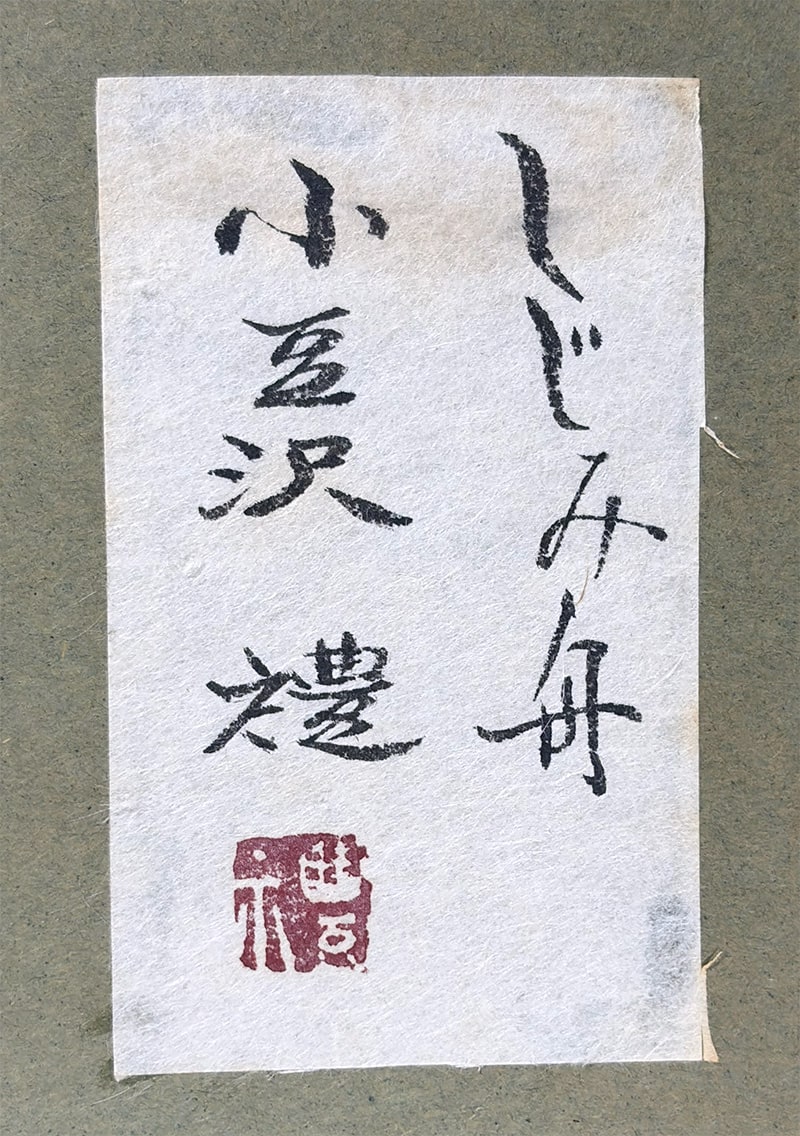 しじみ舟
小豆沢 禮
禮